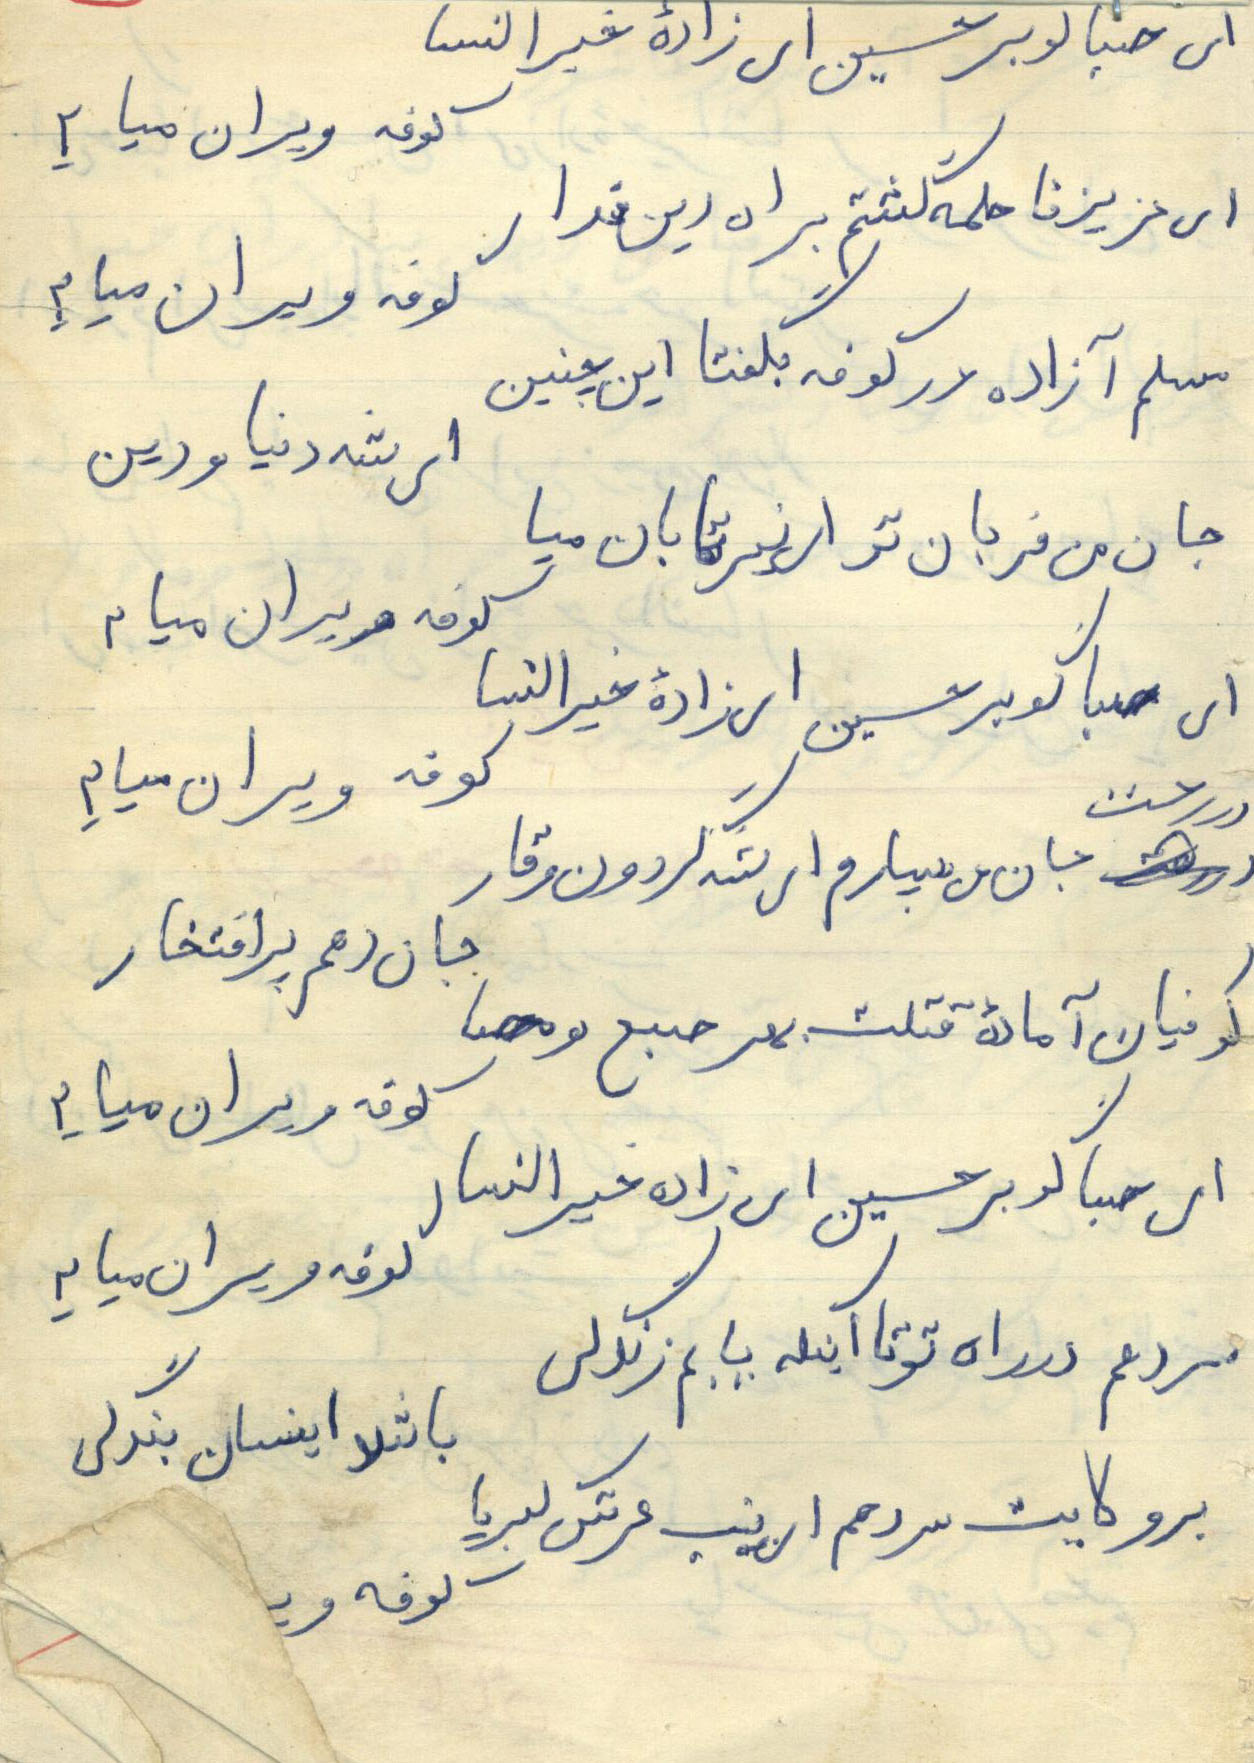 ای صبا گو بر حسین ای زادهٔ خیرالنسا
کوفه ویران میا ۲
ای عزیز فاطمه گشتم براه دین فدا
کوفه ویران میا ۲
مسلم آزاده در کوفه بگفتا این چنین
ای شه دنیا و دین
جان من قربان تو ای نیر تابان میا
کوفه ویران میا ۲
ای صبا گو بر حسین ای زادهٔ خیرالنسا
کوفه ویران میا ۲
در رهت جان می سپارم ای شه گردون وقار
جان دهم پر افتخار
کوفیان آمادهٔ قتلت بهر صبح و مسا
کوفه ویران میا ۲
ای صبا گو بر حسین ای زاده خیرالنسا
کوفه ویران میا ۲
سر دهم در راه تو تا آنکه یابم زندگی
باشد اینسان بندگی
بر ولایت سر دهم ای زیب عرش کبریا
کوفه ویـ